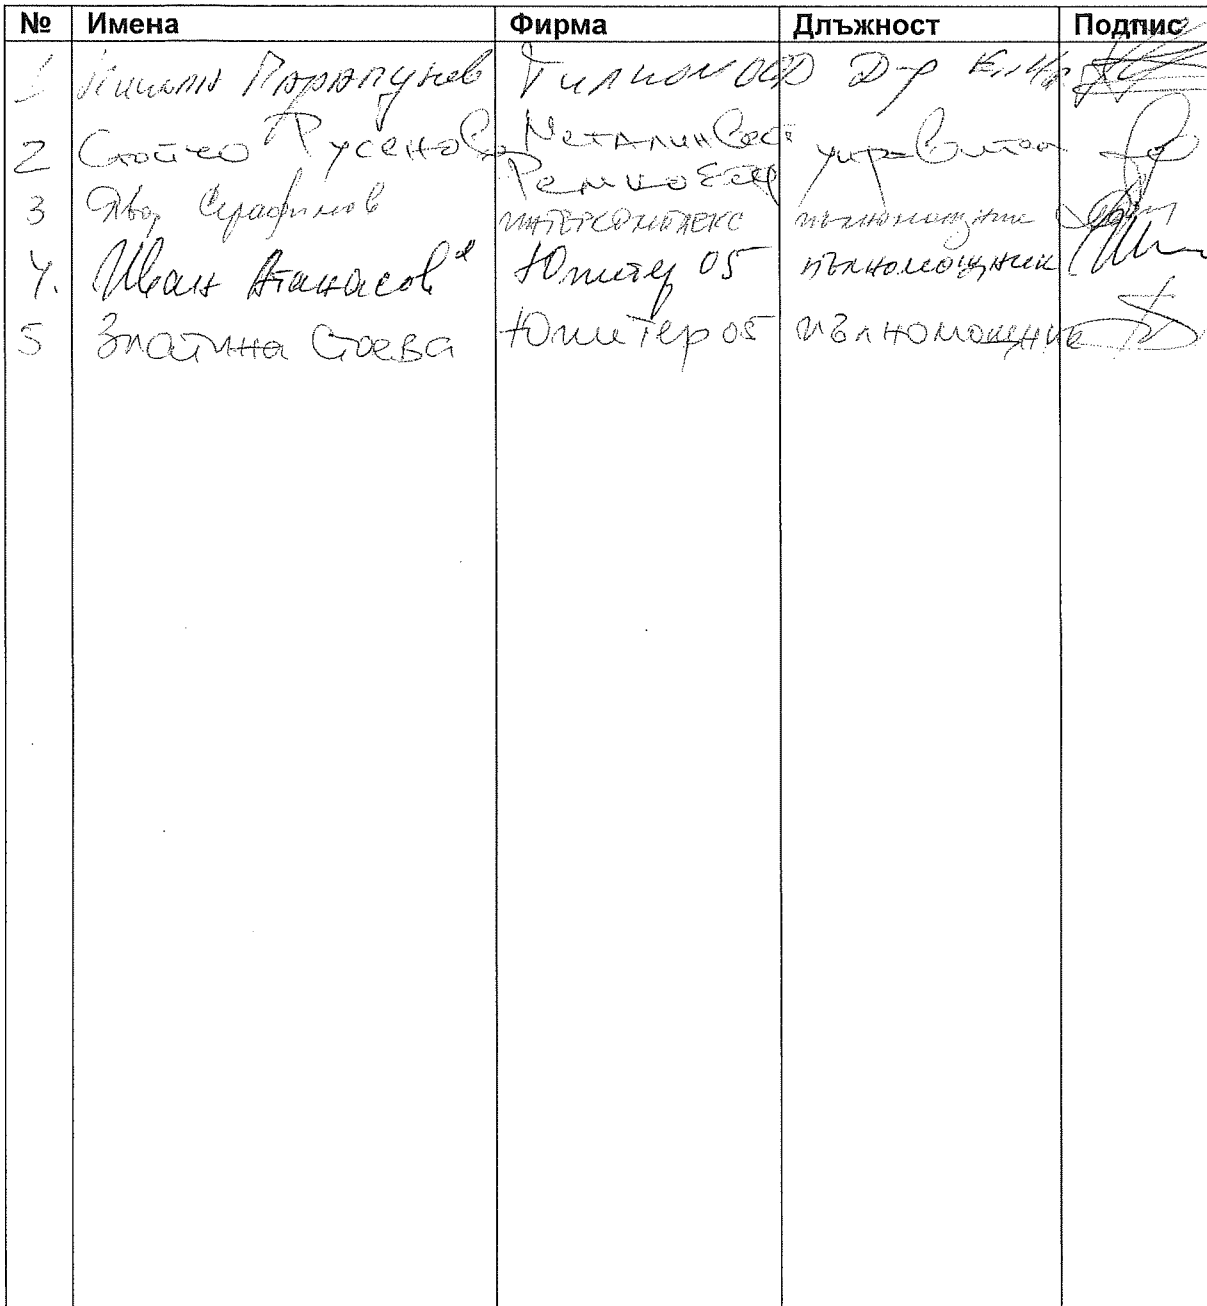 № Имена Фирма Длъжност Подпис
1 Парапунов ООД Д-р
2 Стойко Русенов Металинвест управител
Ремко
3 Явор Серафимов ИНТЕРКОМПЛЕКС пълномощник
4. Иван Атанасов Юпитер 05 пълномощник
5 Златина Стоева Юпитер 05 пълномощник